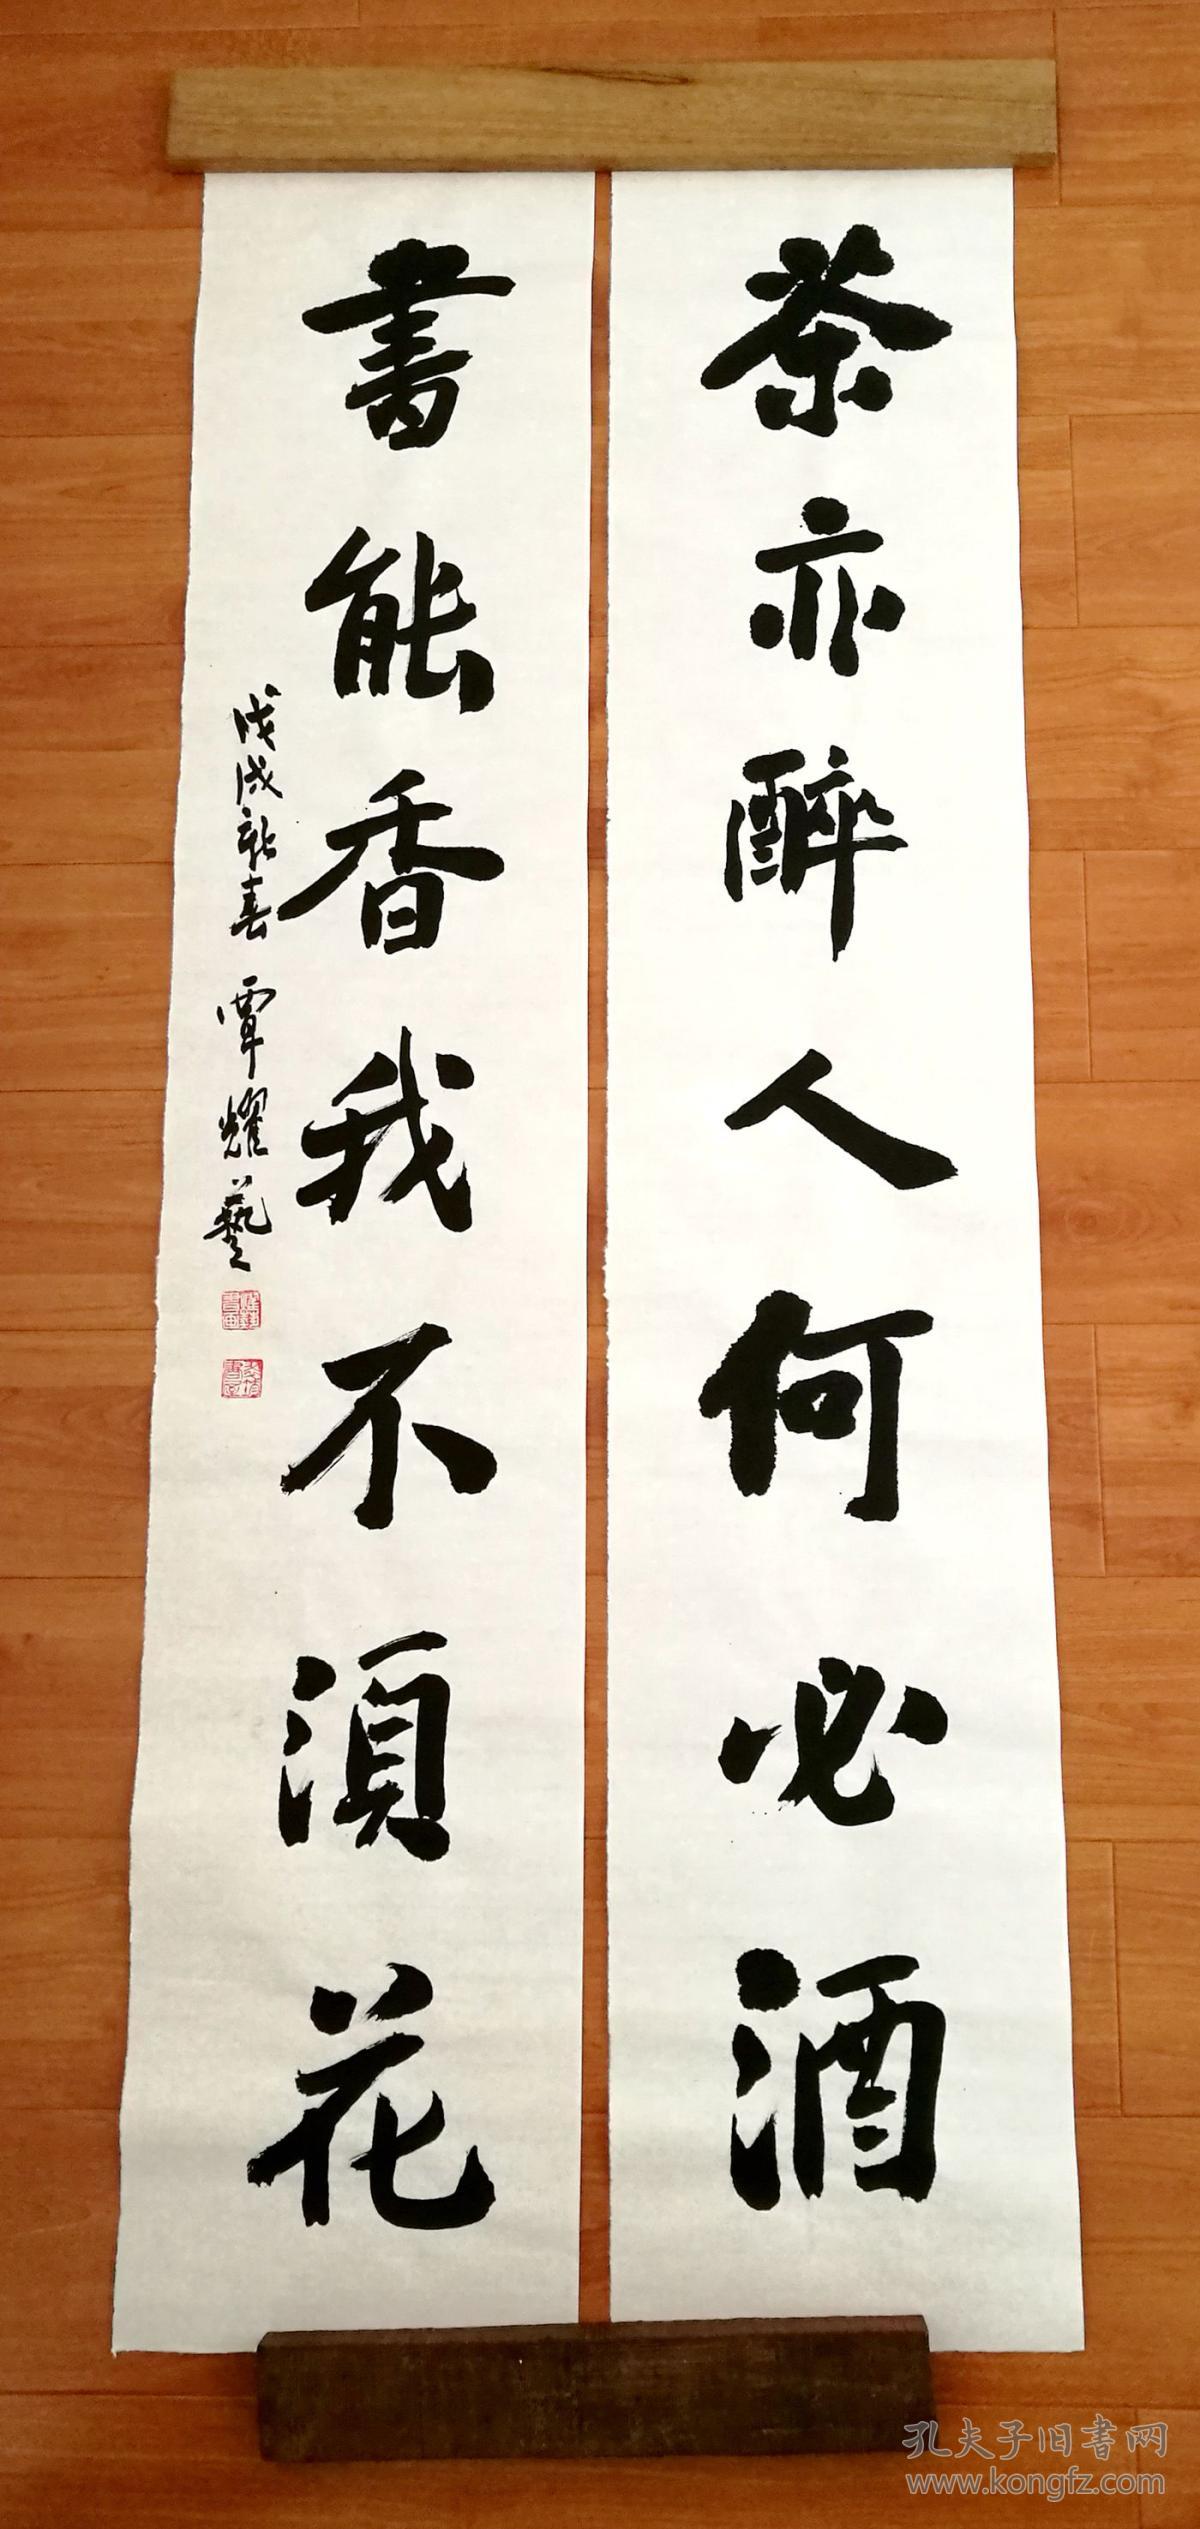 茶亦醉人何必酒
書能香我不須花
戊戌新春 覃耀藝
孔夫子旧书网
www.kongfz.com